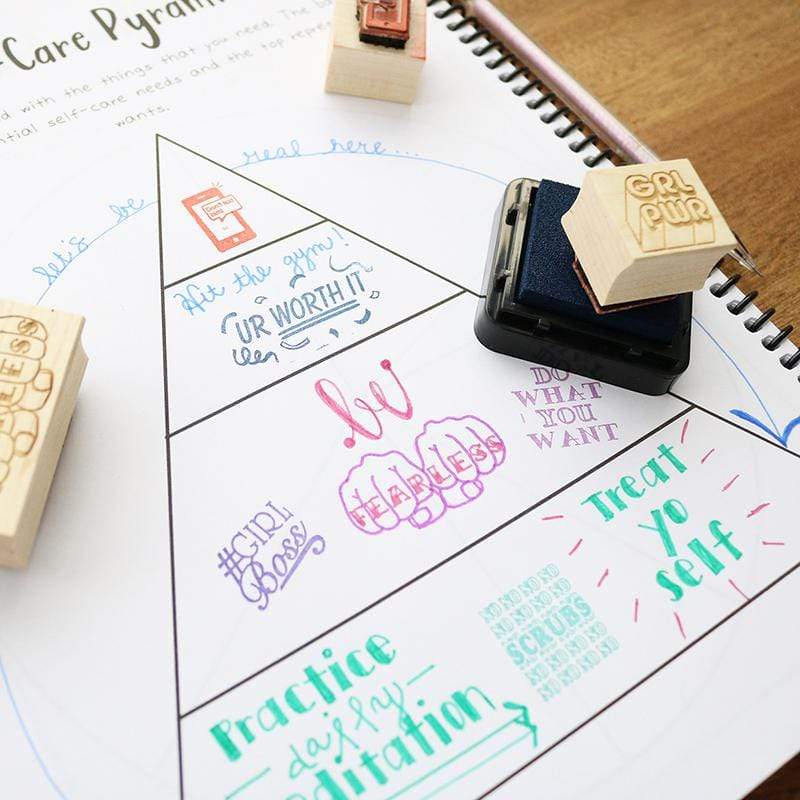 -Care Pyram
d with the things that you need. The ba
ntial self-care needs and the top repre
wants.
let's be real here...
Don't text
Hit the gym!
UR WORTH IT
be
FEARLESS
DO
WHAT
YOU
WANT
#GIRL
Boss
Treat
yo
self
NO NO NO NO
NO NO NO NO
SCRUBS
NO NO NO NO
NO NO NO NO
Practice
daily
editation
GRL
PWR